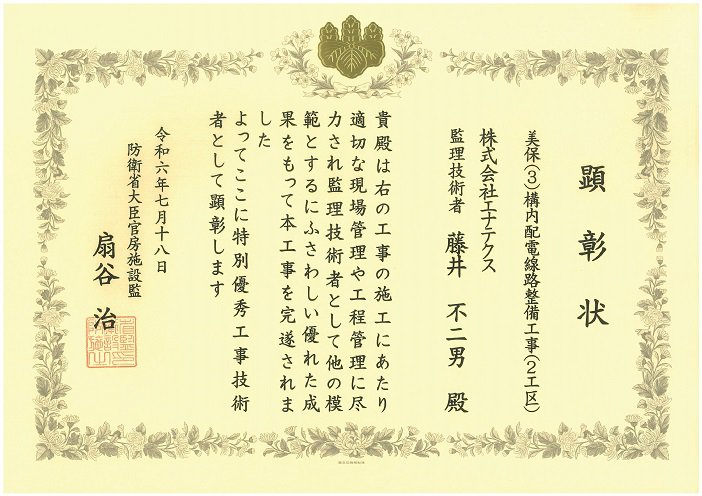 顕彰状
美保(3)構内配電線路整備工事(2工区)
株式会社エナテクス
監理技術者 藤井 不二男 殿
貴殿は右の工事の施工にあたり
適切な現場管理や工程管理に尽
力され監理技術者として他の模
範とするにふさわしい優れた成
果をもって本工事を完遂されま
した
よってここに特別優秀工事技術
者として顕彰します
令和六年七月十八日
防衛省大臣官房施設監
扇谷 治